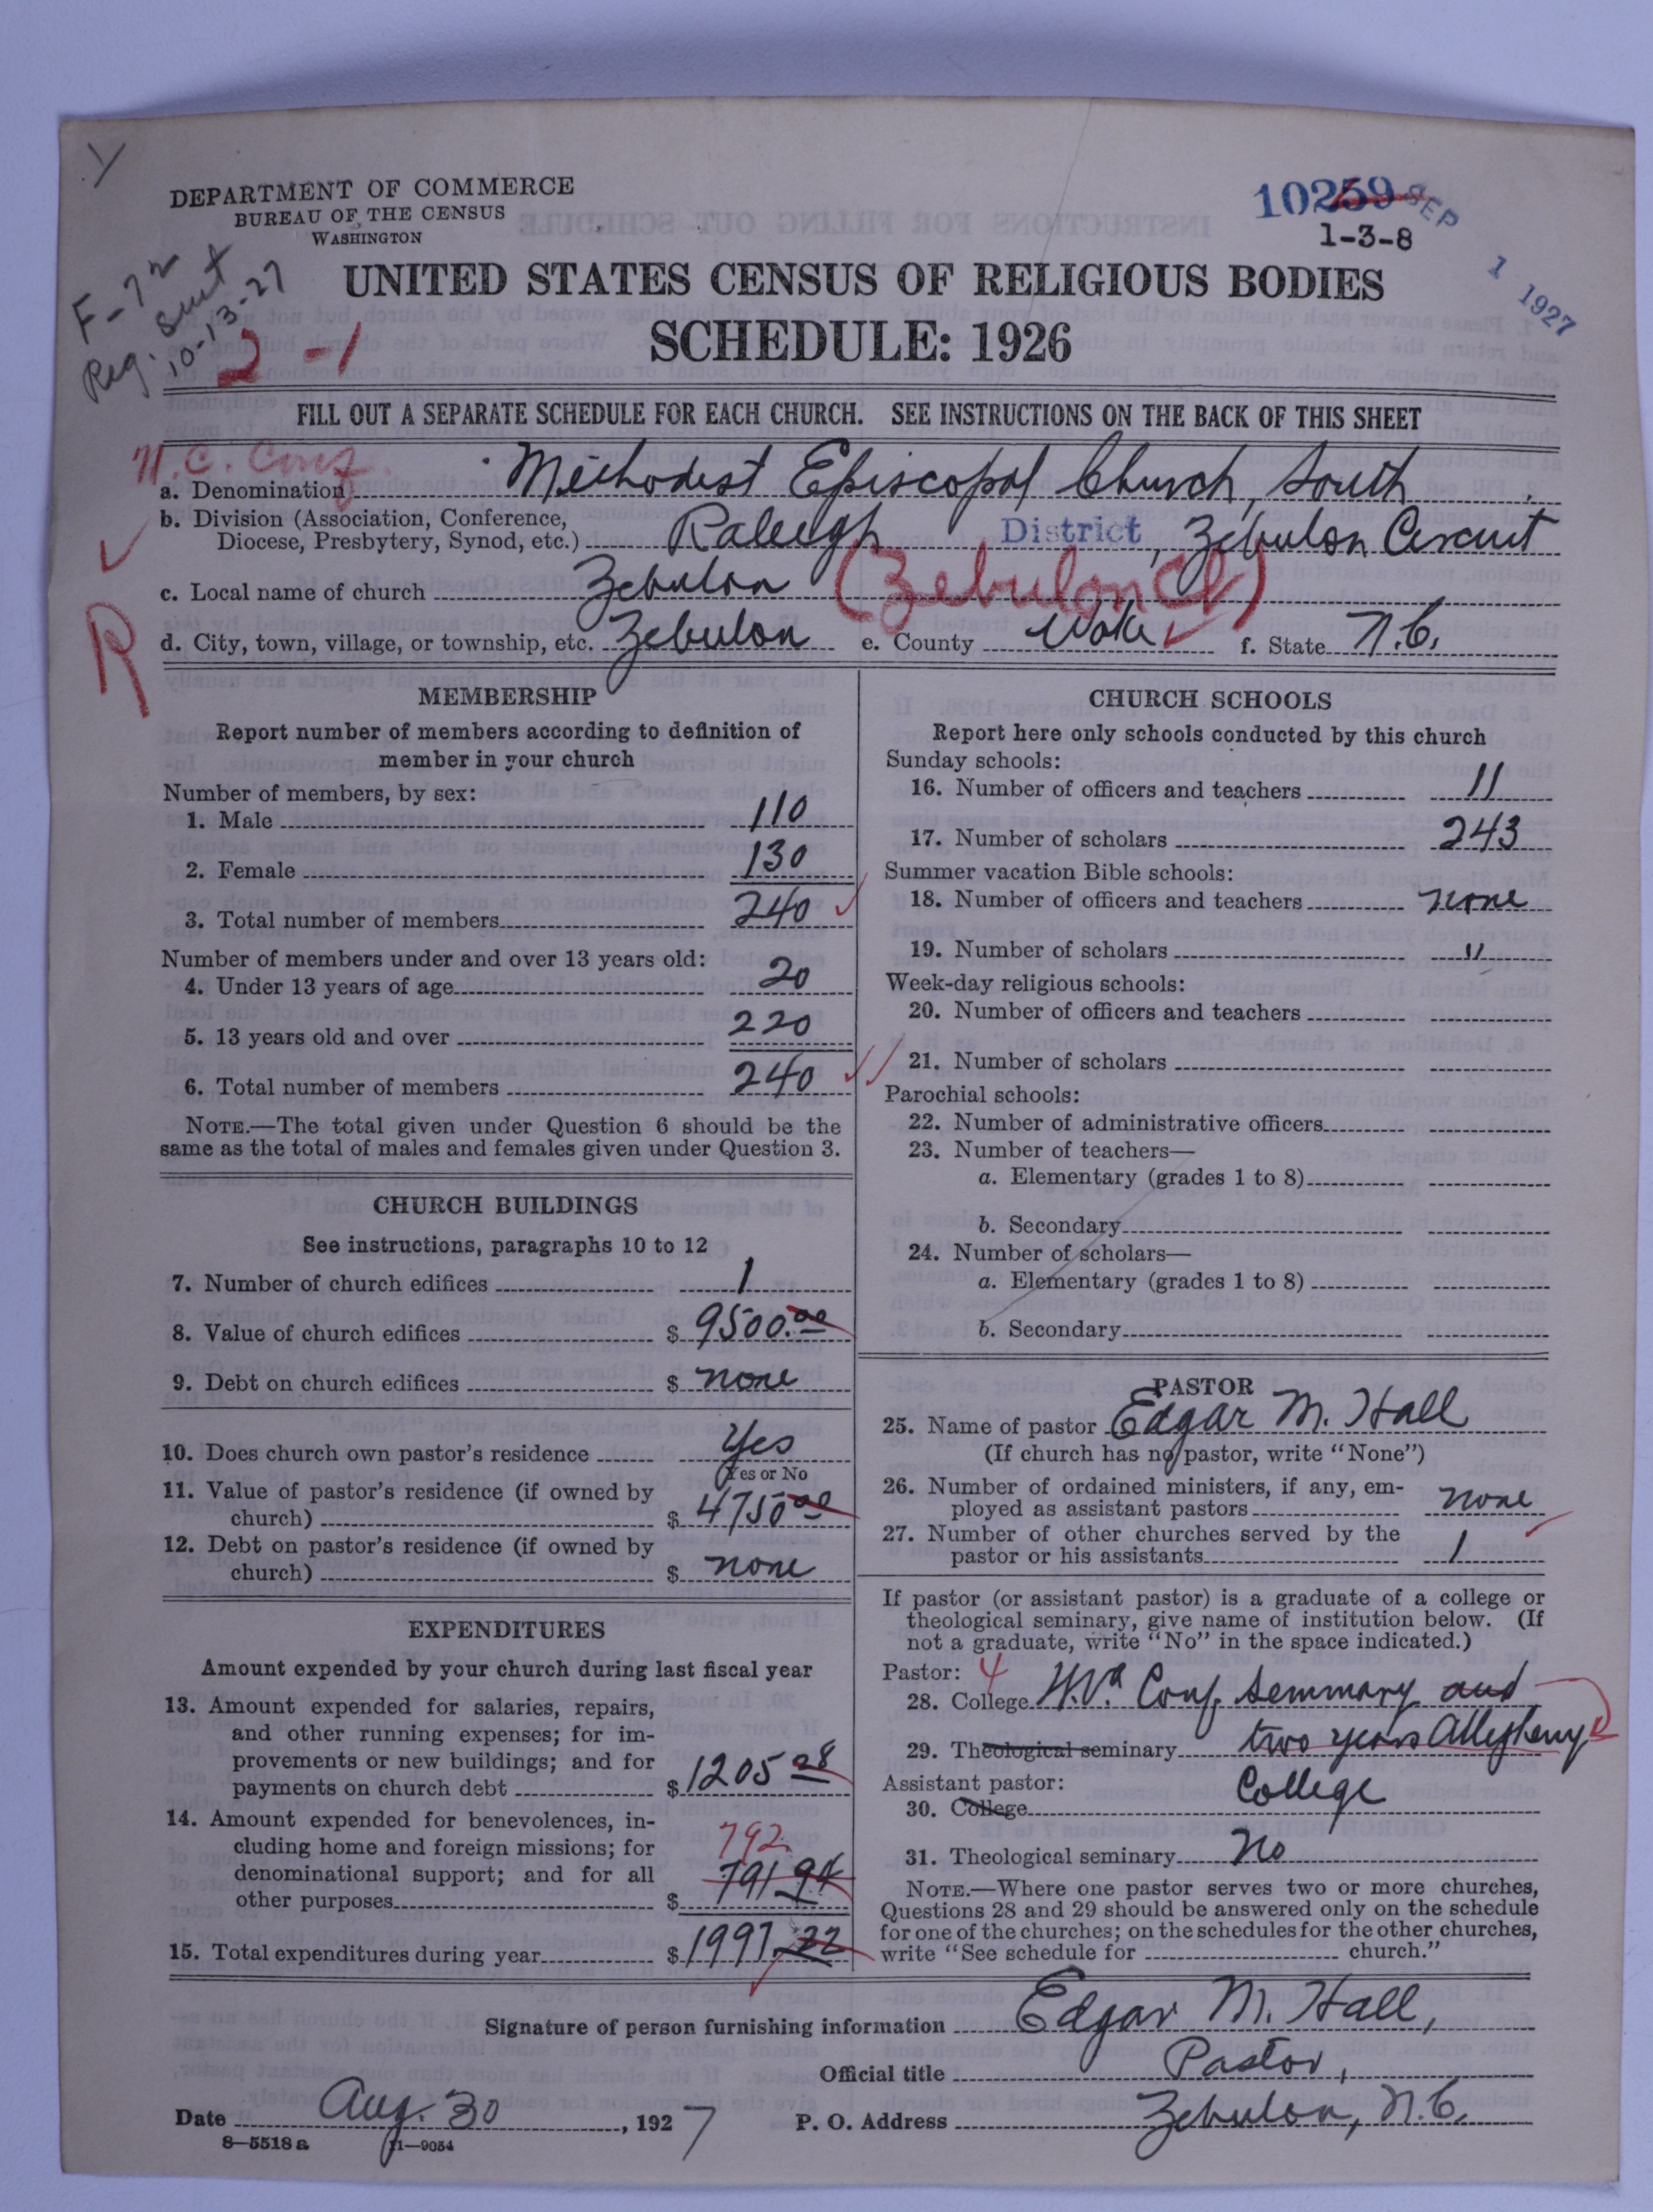 DEPARTMENT OF COMMERCE
BUREAU OF THE CENSUS
WASHINGTON
10259 SEP 1 1927
1-3-8
F-72
Reg. Sent
10-13-27
2-1
UNITED STATES CENSUS OF RELIGIOUS BODIES
SCHEDULE: 1926
FILL OUT A SEPARATE SCHEDULE FOR EACH CHURCH. SEE INSTRUCTIONS ON THE BACK OF THIS SHEET
N.C. Conf.
a. Denomination Methodist Episcopal Church, South.
b. Division (Association, Conference,
Diocese, Presbytery, Synod, etc.) Raleigh District, Zebulon Circuit
c. Local name of church Zebulon (Zebulon Ct)
d. City, town, village, or township, etc. Zebulon e. County Wake f. State N.C.
R
MEMBERSHIP
Report number of members according to definition of
member in your church
Number of members, by sex:
1. Male 110
2. Female 130
3. Total number of members 240
Number of members under and over 13 years old:
4. Under 13 years of age 20
5. 13 years old and over 220
6. Total number of members 240
NOTE.—The total given under Question 6 should be the
same as the total of males and females given under Question 3.
CHURCH BUILDINGS
See instructions, paragraphs 10 to 12
7. Number of church edifices 1
8. Value of church edifices $ 9500.00
9. Debt on church edifices $ none
10. Does church own pastor's residence Yes
Yes or No
11. Value of pastor's residence (if owned by
church) $ 4750 00
12. Debt on pastor's residence (if owned by
church) $ none
EXPENDITURES
Amount expended by your church during last fiscal year
13. Amount expended for salaries, repairs,
and other running expenses; for im-
provements or new buildings; and for
payments on church debt $ 1205 28
14. Amount expended for benevolences, in-
cluding home and foreign missions; for
denominational support; and for all
other purposes $ 791 94
792
15. Total expenditures during year $ 1997.22
CHURCH SCHOOLS
Report here only schools conducted by this church
Sunday schools:
16. Number of officers and teachers 11
17. Number of scholars 243
Summer vacation Bible schools:
18. Number of officers and teachers none
19. Number of scholars "
Week-day religious schools:
20. Number of officers and teachers
21. Number of scholars
Parochial schools:
22. Number of administrative officers
23. Number of teachers—
a. Elementary (grades 1 to 8)
b. Secondary
24. Number of scholars—
a. Elementary (grades 1 to 8)
b. Secondary
PASTOR
25. Name of pastor Edgar M. Hall
(If church has no pastor, write "None")
26. Number of ordained ministers, if any, em-
ployed as assistant pastors none
27. Number of other churches served by the
pastor or his assistants 1
If pastor (or assistant pastor) is a graduate of a college or
theological seminary, give name of institution below. (If
not a graduate, write "No" in the space indicated.)
Pastor: 4
28. College W.Va. Conf. Seminary and
29. Theological seminary two years Allegheny
Assistant pastor:
30. College College
31. Theological seminary No
NOTE.—Where one pastor serves two or more churches,
Questions 28 and 29 should be answered only on the schedule
for one of the churches; on the schedules for the other churches,
write "See schedule for church."
Signature of person furnishing information Edgar M. Hall,
Official title Pastor,
Date Aug. 30, 1927 P. O. Address Zebulon, N.C.
8—5518 a 11—9054